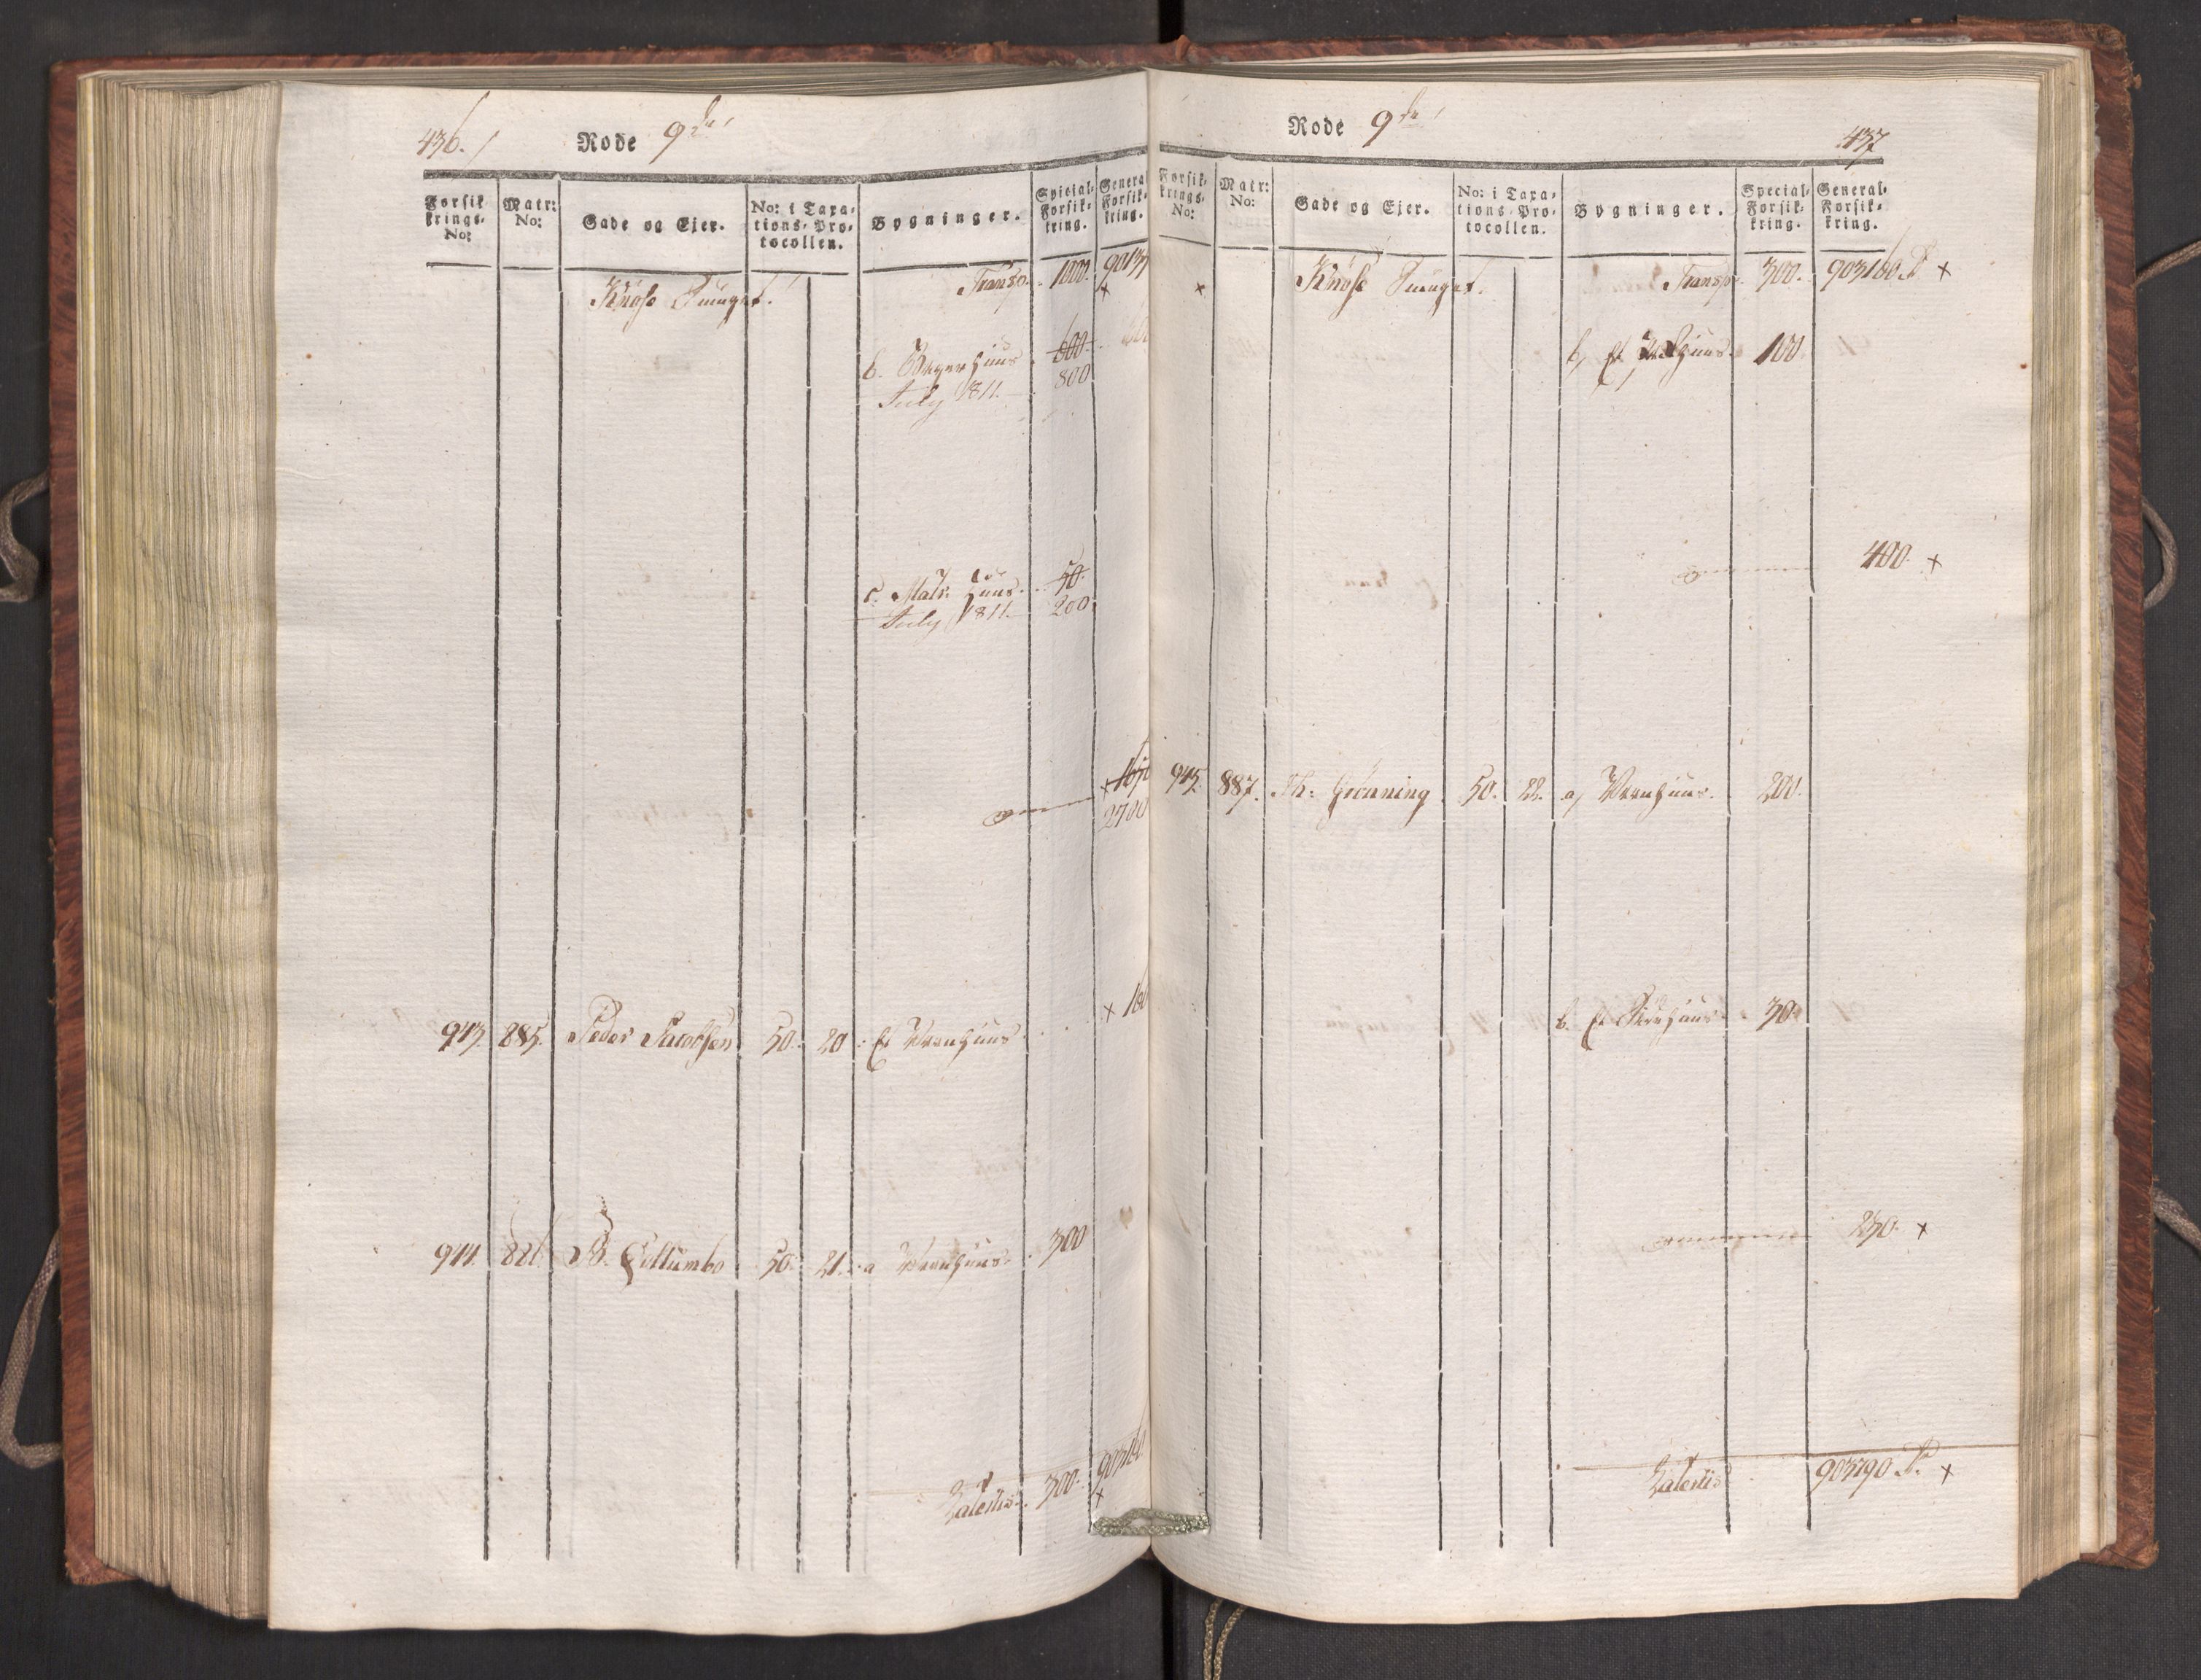 436.
Rode 9de
Forsik-
krings-
No:
Matr:
No:
Gade og Ejer.
No: i Taxa-
tions-Pro-
tocollen.
Bygninger.
Special-
Forsik-
kring.
General
Forsik-
kring.
Transp. 1000.
b. Bryggerhuus 600
July 1811. 800
c. Mats. Huus. 50
July 1811. 200
1650
2700
943. 885. Peder Jacobsen 50. 20 Et Vaanhuus
944. 886 B. Collumbo 50. 21. a Vaanhuus 300
Lateris. 300. 903160
Rode 9de
437
Forsik-
krings-
No:
Matr:
No:
Gade og Ejer.
No: i Taxa-
tions-Pro-
tocollen.
Bygninger.
Special-
Forsik-
kring.
General-
Forsik-
kring.
Transp. 300. 903160 +
b, Et 100
400. +
945. 887. Th: Grønning 50. 22. a, Vaanhuus. 200.
b. Et 30
230. +
Lateris 903790 +